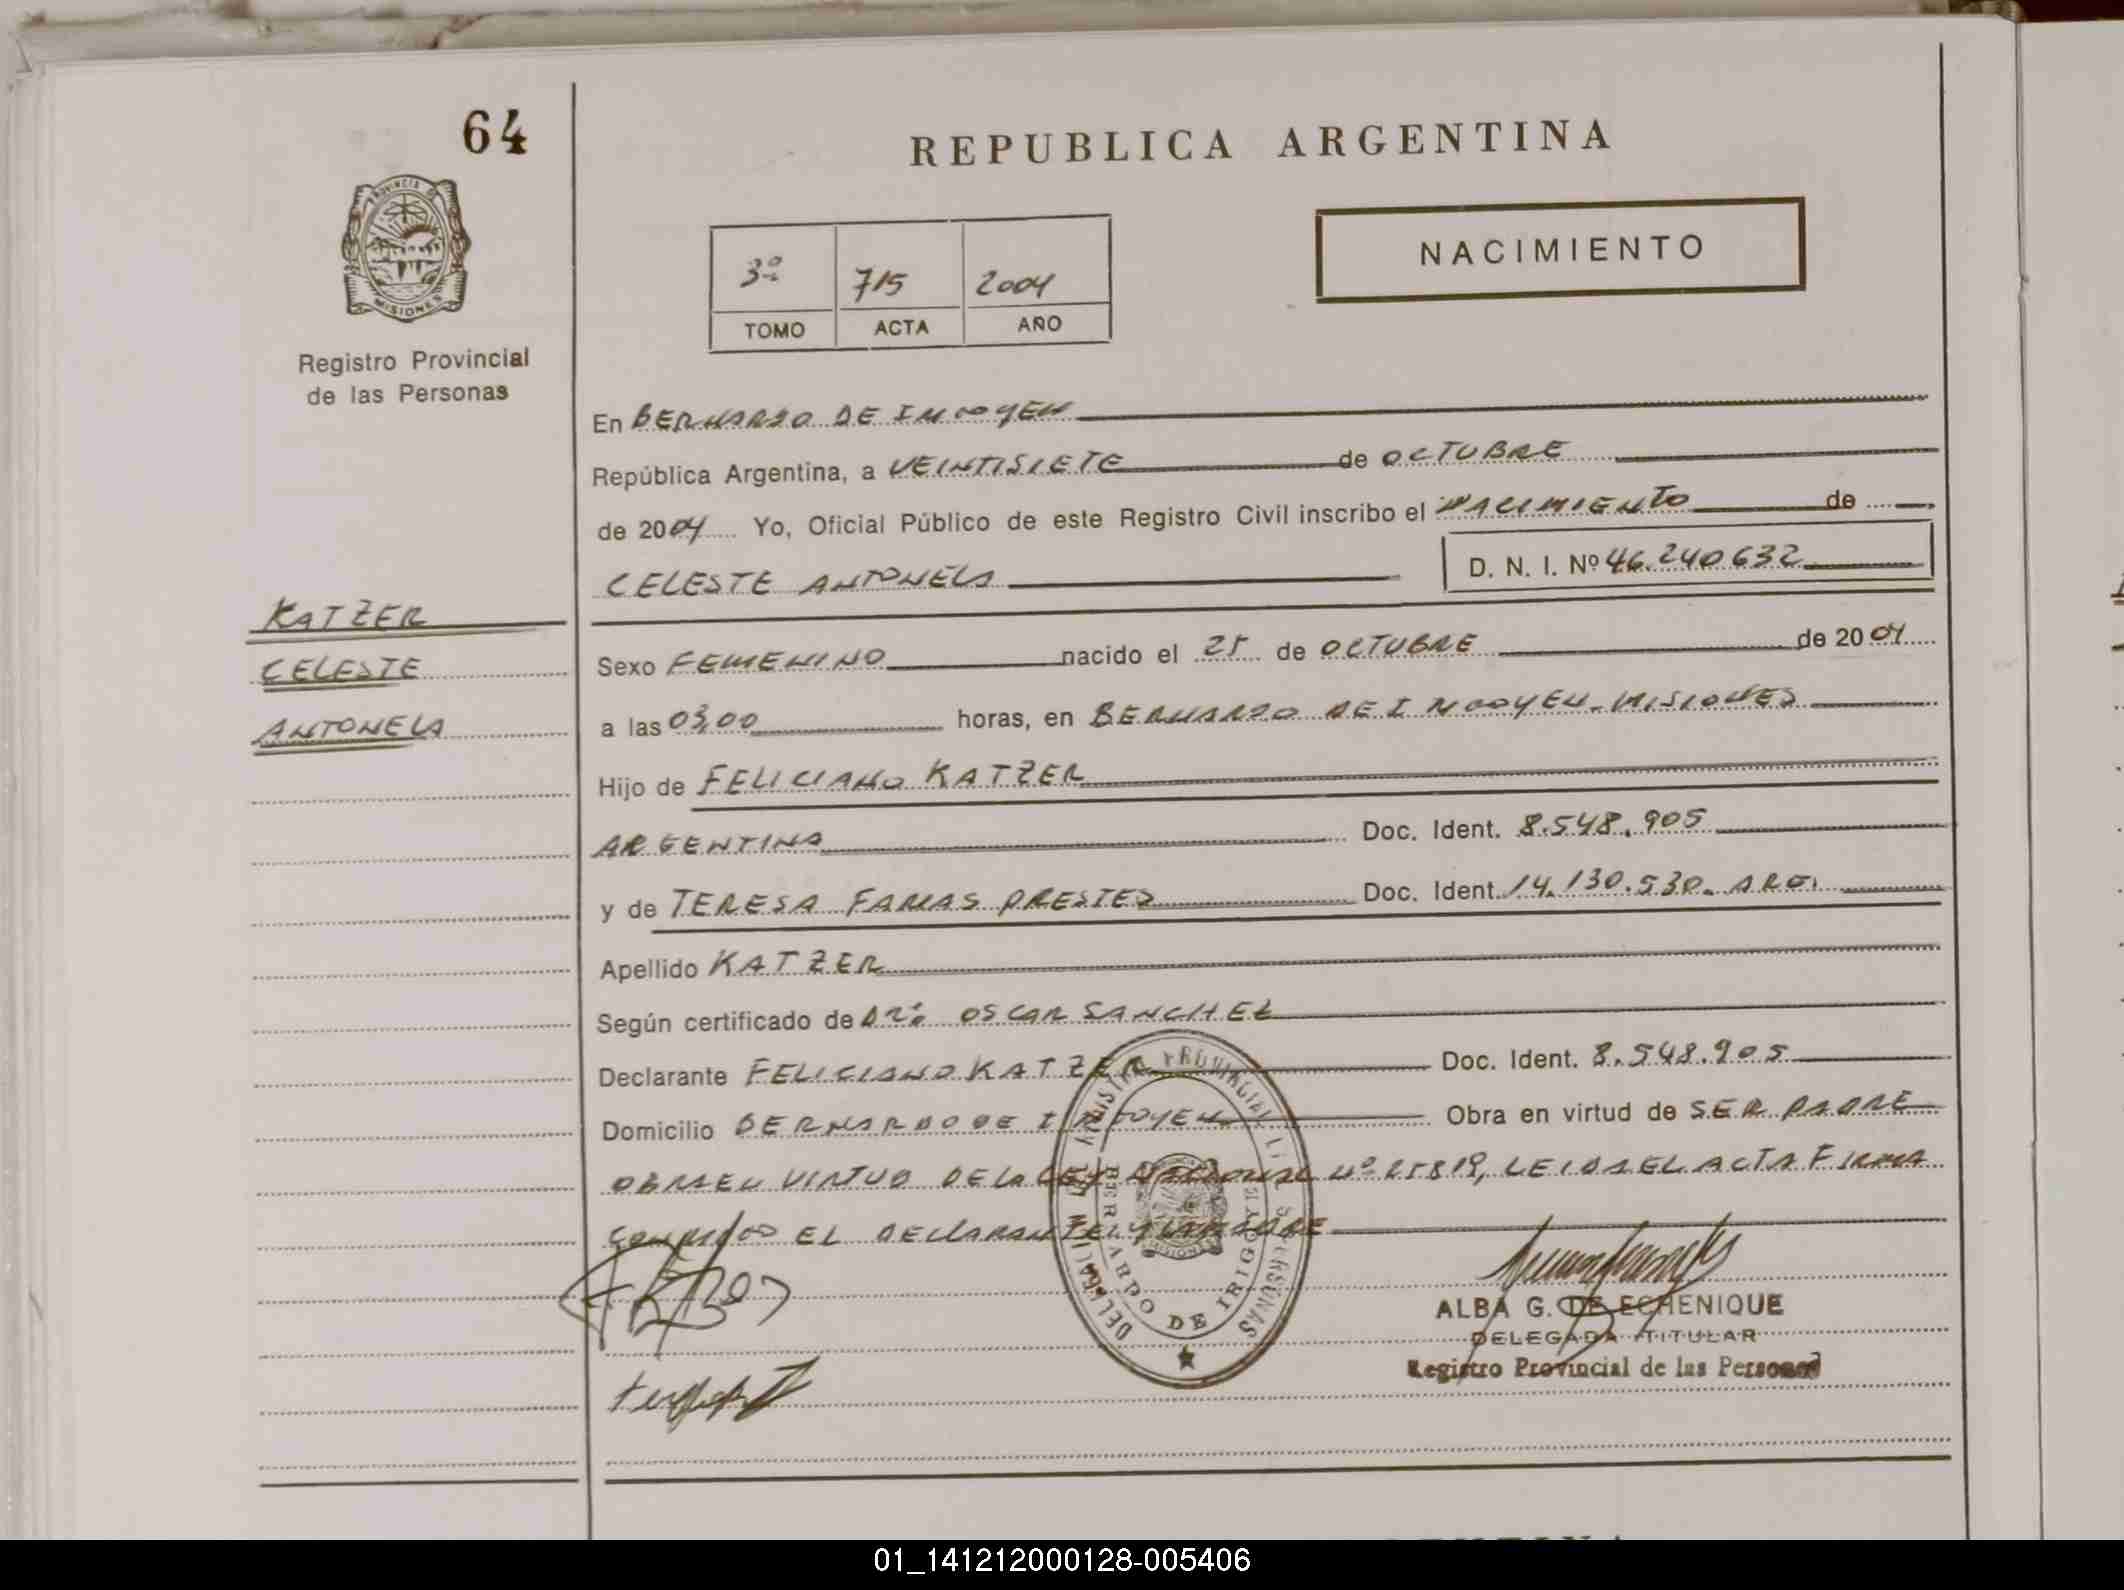 64
REPUBLICA ARGENTINA
PROVINCIA DE
MISIONES
NACIMIENTO
3º 715 2004
TOMO ACTA AÑO
Registro Provincial
de las Personas
En BERNARDO DE IRIGOYEN
República Argentina, a VEINTISIETE de OCTUBRE
de 2004 Yo, Oficial Público de este Registro Civil inscribo el NACIMIENTO de
CELESTE ANTONELA D. N. I. Nº 46.240632
KATZER
CELESTE
ANTONELA
Sexo FEMENINO nacido el 25 de OCTUBRE de 2004
a las 03,00 horas, en BERNARDO DE IRIGOYEN-MISIONES
Hijo de FELICIANO KATZER
ARGENTINA Doc. Ident. 8.548.905
y de TERESA FARIAS PRESTES Doc. Ident. 14.130.530. ARG.
Apellido KATZER
Según certificado de Drº. OSCAR SANCHEZ
Declarante FELICIANO KATZER Doc. Ident. 8.548.905
Domicilio BERNARDO DE IRIGOYEN Obra en virtud de SER PADRE
OBRA EN VIRTUD DE LA LEY NACIONAL Nº 25819, LEIDA EL ACTA FIRMA
CONMIGO EL DECLARANTE Y LA MADRE
REGISTRO PROVINCIAL DE LAS PERSONAS
BERNARDO DE IRIGOYEN
MISIONES
ALBA G. DE ECHENIQUE
DELEGADA TITULAR
Registro Provincial de las Personas
01_141212000128-005406